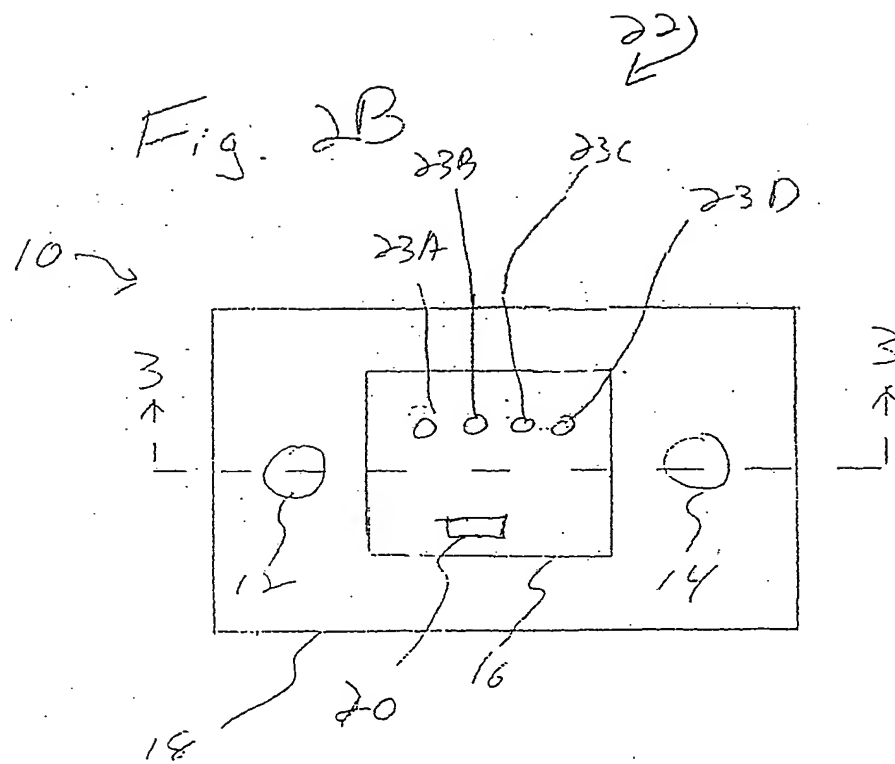 22
Fig. 2B
23B
23C
23D
23A
10
3
3
12
14
20
16
18